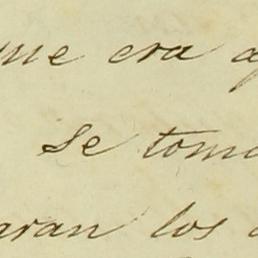 que era
se tom
aran los